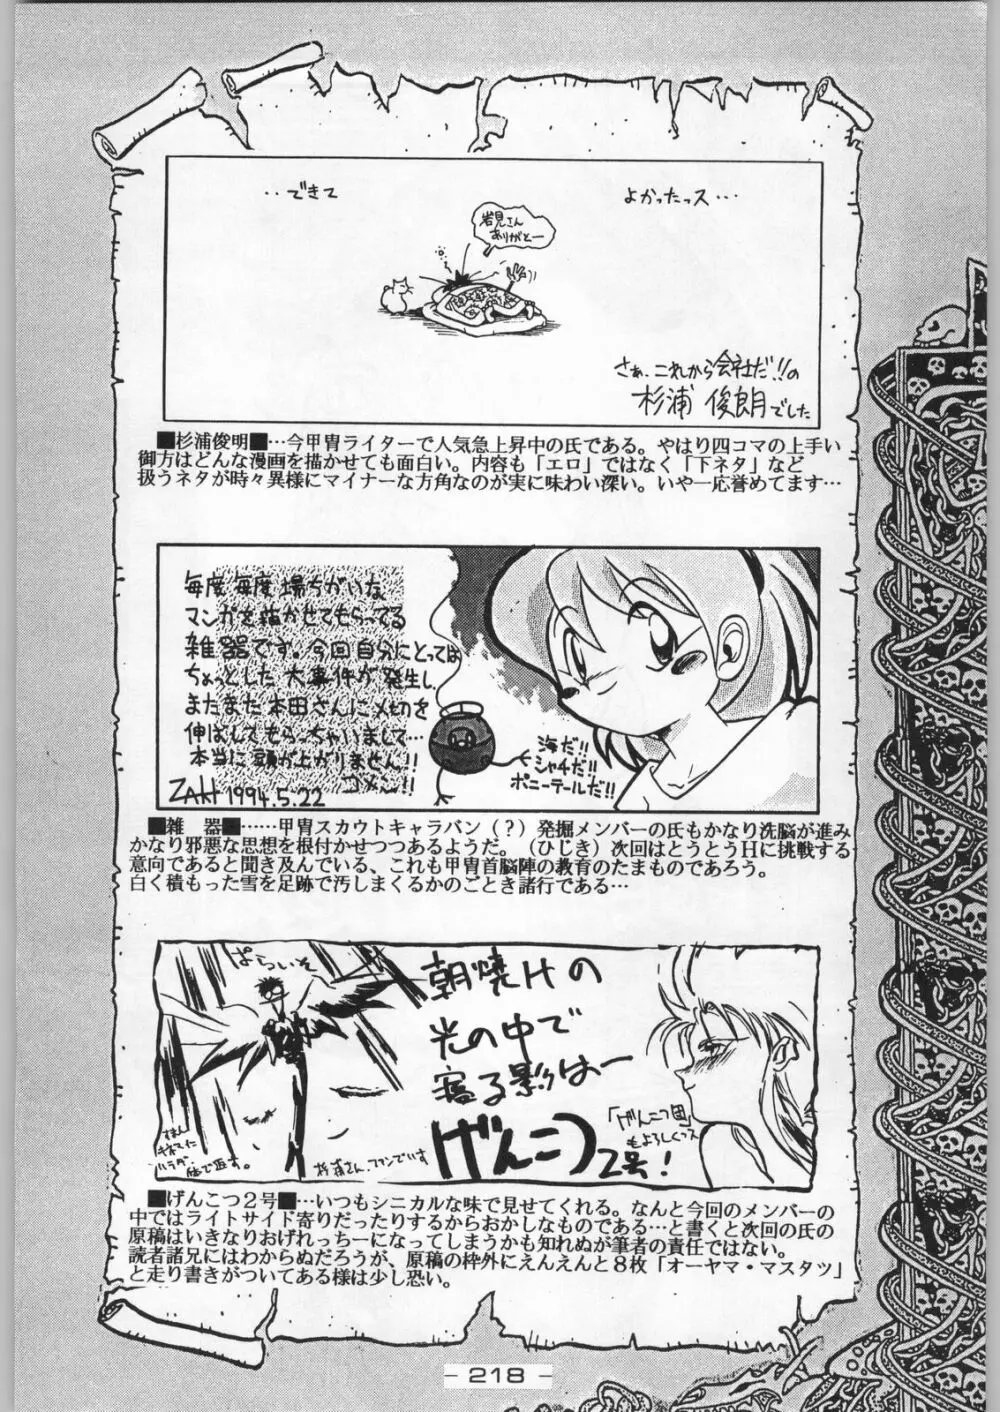 ‥できて
よかったっス…
岩見さん
ありがとー
さぁ、これから会社だ!!の
杉浦 俊朗でした
■杉浦俊明■…今甲冑ライターで人気急上昇中の氏である。やはり四コマの上手い
御方はどんな漫画を描かせても面白い。内容も「エロ」ではなく「下ネタ」など
扱うネタが時々異様にマイナーな方角なのが実に味わい深い。いや一応誉めてます…
毎度毎度場ちがいな
マンガを描かせてもらってる
雑器です。今回自分にとっては
ちょっとした大事件が発生し、
またまた本田さんに〆切を
伸ばしてもらっちゃいまして…
本当に頭が上がりません!!
ゴメ〜ン!!
ZAKI 1994.5.22
海だ!!
シャチだ!!
ポニーテールだ!!
■雑 器■……甲冑スカウトキャラバン(?)発掘メンバーの氏もかなり洗脳が進み
かなり邪悪な思想を根付かせつつあるようだ。(ひじき)次回はとうとうHに挑戦する
意向であると聞き及んでいる、これも甲冑首脳陣の教育のたまものであろう。
白く積もった雪を足跡で汚しまくるかのごとき諸行である…
ぱらいそ
朝焼けの
光の中で
寝る影はー
げんこつ2号!
「げんこつ団」
もよろしくっス
すまん
体で返す。
杉浦さん、ファンでいす
■げんこつ2号■…いつもシニカルな味で見せてくれる。なんと今回のメンバーの
中ではライトサイド寄りだったりするからおかしなものである…と書くと次回の氏の
原稿はいきなりおげれっちーになってしまうかも知れぬが筆者の責任ではない。
読者諸兄にはわからぬだろうが、原稿の枠外にえんえんと8枚「オーヤマ・マスタツ」
と走り書きがついてある様は少し恐い。
- 218 -